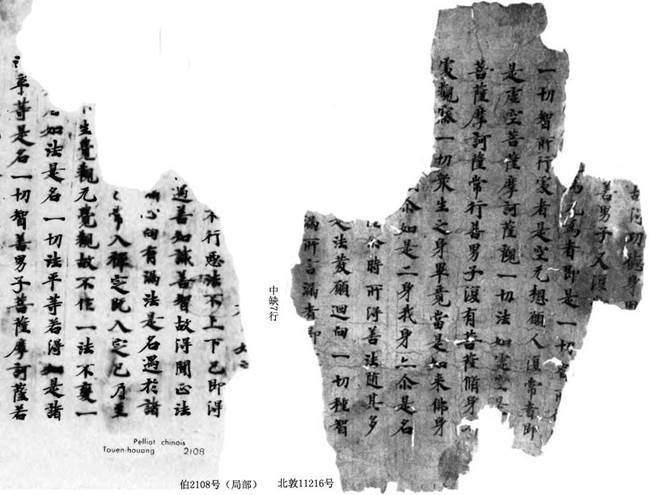 善男子又復
為无為者即是一切
一切智所行處者是空无想願人復常者即
是虛空菩薩摩訶薩觀一切法如虛空是
菩薩摩訶薩常行善男子復有菩薩脩身
處觀察一切衆生之身畢竟當是如来佛身
亦如是二身我身亦尒是名
時所得善法随其多
入法發願迴向一切種智
漏所言漏者即
中缺7行
不行惡法不上下已即得
遇善知識善智故得聞正法
心向有漏法是名遇於諸
常入禪定既入定已乃至
生覺觀无覺觀故不作一法不變一
如法是名一切法平等若得如是諸
平等是名一切智善男子菩薩摩訶薩若
Pelliot chinois
Touen-houang 2108
伯2108号（局部） 北敦11216号